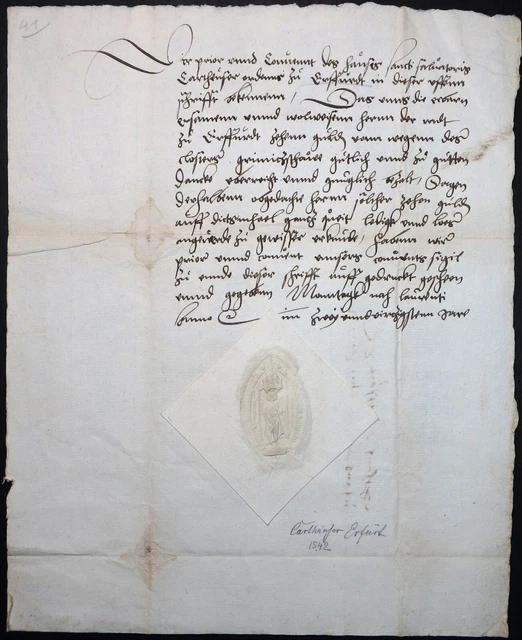 41
Wir prior vnnd Conuent des hauses sancti saluatoris
Cartheuser ordens zu Erffurdt in dieser offenn
schrifft bekennenn / Das vnns die erbarn
ersamenn vnnd wolweisenn herrn der radt
zu Erffurdt zehenn guldenn vonn wegenn des
closters gutlich vnnd zu gutten
danck vberreicht vnnd gnuglich bzalt / Sagen
derhalbenn obgedachte herrn solcher zehen guldn
auff dietzmhael gantz queit ledigk vnnd loes
zu gewisser vrkunde / habenn wir
prior vnnd conuent vnnsers conuents sigil
zu ende dieser schrifft auff gedruckt geschen
vnnd gegeben Montagk nach laurentii
Anno im zwey vnnd viertzigstenn Jare
Carthäuser Erfurt
1542